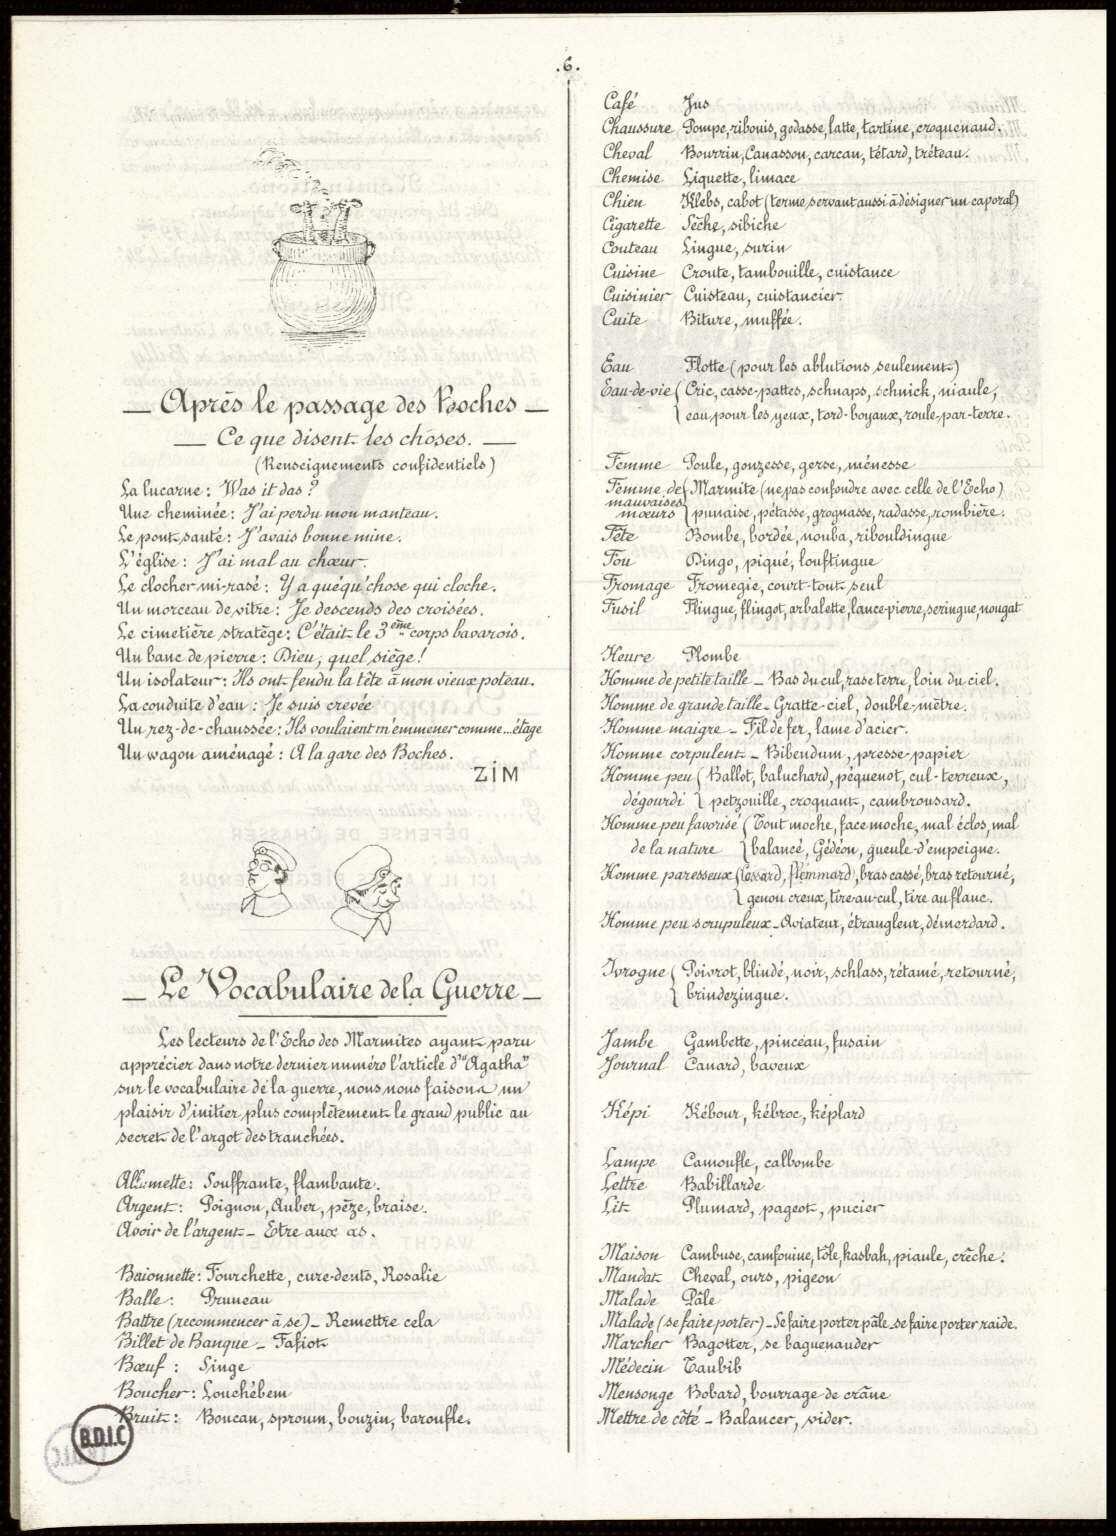 .6.
— Après le passage des Boches —
— Ce que disent les choses. —
(Renseignements confidentiels)
La lucarne : Was it das ?
Une cheminée : J'ai perdu mon manteau.
Le pont sauté : J'avais bonne mine.
L'église : J'ai mal au chœur.
Le clocher mi-rasé : Y a quéqu'chose qui cloche.
Un morceau de vitre : Je descends des croisées.
Le cimetière stratège : C'était le 3ème corps bavarois.
Un banc de pierre : Dieu, quel siège !
Un isolateur : Ils ont fendu la tête à mon vieux poteau.
La conduite d'eau : Je suis crevée
Un rez-de-chaussée : Ils voulaient m'emmener comme...étage
Un wagon aménagé : A la gare des Boches.
ZIM
— Le Vocabulaire de la Guerre —
Les lecteurs de l'Echo des Marmites ayant paru
apprécier dans notre dernier numéro l'article d'"Agatha"
sur le vocabulaire de la guerre, nous nous faisons un
plaisir d'initier plus complètement le grand public au
secret de l'argot des tranchées.
Allumette : Souffrante, flambante.
Argent : Poignon, Auber, pèze, braise.
Avoir de l'argent – Etre aux as.
Baionnette : Fourchette, cure-dents, Rosalie
Balle : Pruneau
Battre (recommencer à se) – Remettre cela
Billet de Banque – Fafiot
Bœuf : Singe
Boucher : Louchébem
Bruit : Boucan, sproum, bouzin, baroufle.
B.D.I.C
Café Jus
Chaussure Pompe, ribouis, godasse, latte, tartine, croquenaud.
Cheval Bourrin, Canasson, carcan, têtard, tréteau.
Chemise Liquette, limace
Chien Klebs, cabot (terme servant aussi à désigner un caporal)
Cigarette Sèche, sibiche
Couteau Lingue, surin
Cuisine Croute, tambouille, cuistance
Cuisinier Cuisteau, cuistancier
Cuite Biture, muffée.
Eau Flotte (pour les ablutions seulement)
Eau-de-vie { Cric, casse-pattes, schnaps, schnick, niaule,
eau pour les yeux, tord-boyaux, roule-par-terre.
Femme Poule, gonzesse, gerse, ménesse
Femme de { Marmite (ne pas confondre avec celle de l'Echo)
mauvaises
mœurs punaise, pétasse, grognasse, radasse, rombière.
Fête Bombe, bordée, nouba, ribouldingue
Fou Dingo, piqué, louftingue
Fromage Fromegie, court-tout-seul
Fusil Flingue, flingot, arbalette, lance-pierre, seringue, nougat
Heure Plombe
Homme de petite taille – Bas du cul, rase terre, loin du ciel.
Homme de grande taille – Gratte-ciel, double-mètre.
Homme maigre – Fil de fer, lame d'acier.
Homme corpulent – Bibendum, presse-papier
Homme peu { Ballot, baluchard, péquenot, cul-terreux,
dégourdi petzouille, croquant, cambrousard.
Homme peu favorisé { Tout moche, face moche, mal éclos, mal
de la nature balancé, Gédéon, gueule d'empeigne.
Homme paresseux { Cossard, flemmard, bras cassé, bras retourné,
genou creux, tire-au-cul, tire au flanc.
Homme peu scrupuleux – Aviateur, étrangleur, démerdard.
Ivrogne { Poivrot, blindé, noir, schlass, rétamé, retourné,
brindezingue.
Jambe Gambette, pinceau, fusain
Journal Canard, baveux
Képi Kébour, kébroc, képlard
Lampe Camoufle, calbombe
Lettre Babillarde
Lit Plumard, pageot, pucier
Maison Cambuse, camfouine, tôle, kasbah, piaule, crèche.
Mandat Cheval, ours, pigeon
Malade Pâle
Malade (se faire porter) – Se faire porter pâle – se faire porter raide.
Marcher Bagotter, se baguenauder
Médecin Taubib
Mensonge Bobard, bourrage de crâne
Mettre de côté – Balancer, vider.